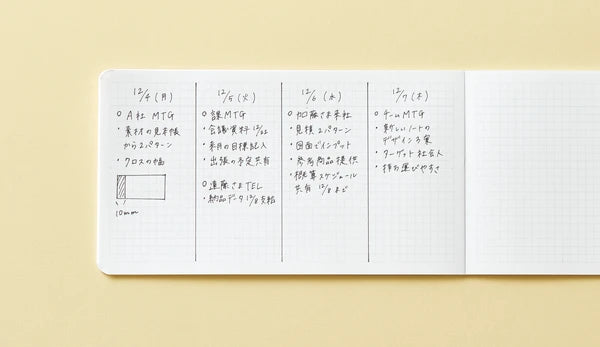 12/4 (月)
○ A社 MTG
・素材の見本帳
から2パターン
・クロスの幅
10mm
12/5 (火)
○ 課MTG
・会議資料 12/22
・来月の目標記入
・出張の予定共有
○ 遠藤さまTEL
・納品データ 12/8 支給
12/6 (水)
○ 加藤さま来社
・見積 2パターン
・図面でインプット
・参考商品提供
・概算スケジュール
共有 12/8 まで
12/7 (木)
○ チームMTG
・新しいノートの
デザイン3案
・ターゲット 社会人
・持ち運びやすさ